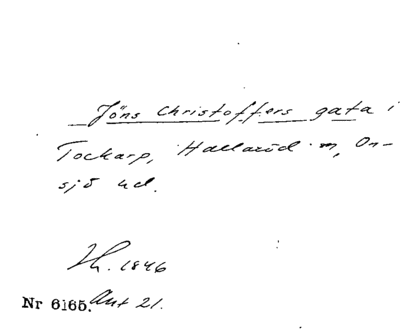 Jöns Christoffers gata i
Tockarp, Hallaröd sn, On-
sjö hd.
Th. 1846
Nr 6165. Ant 21.